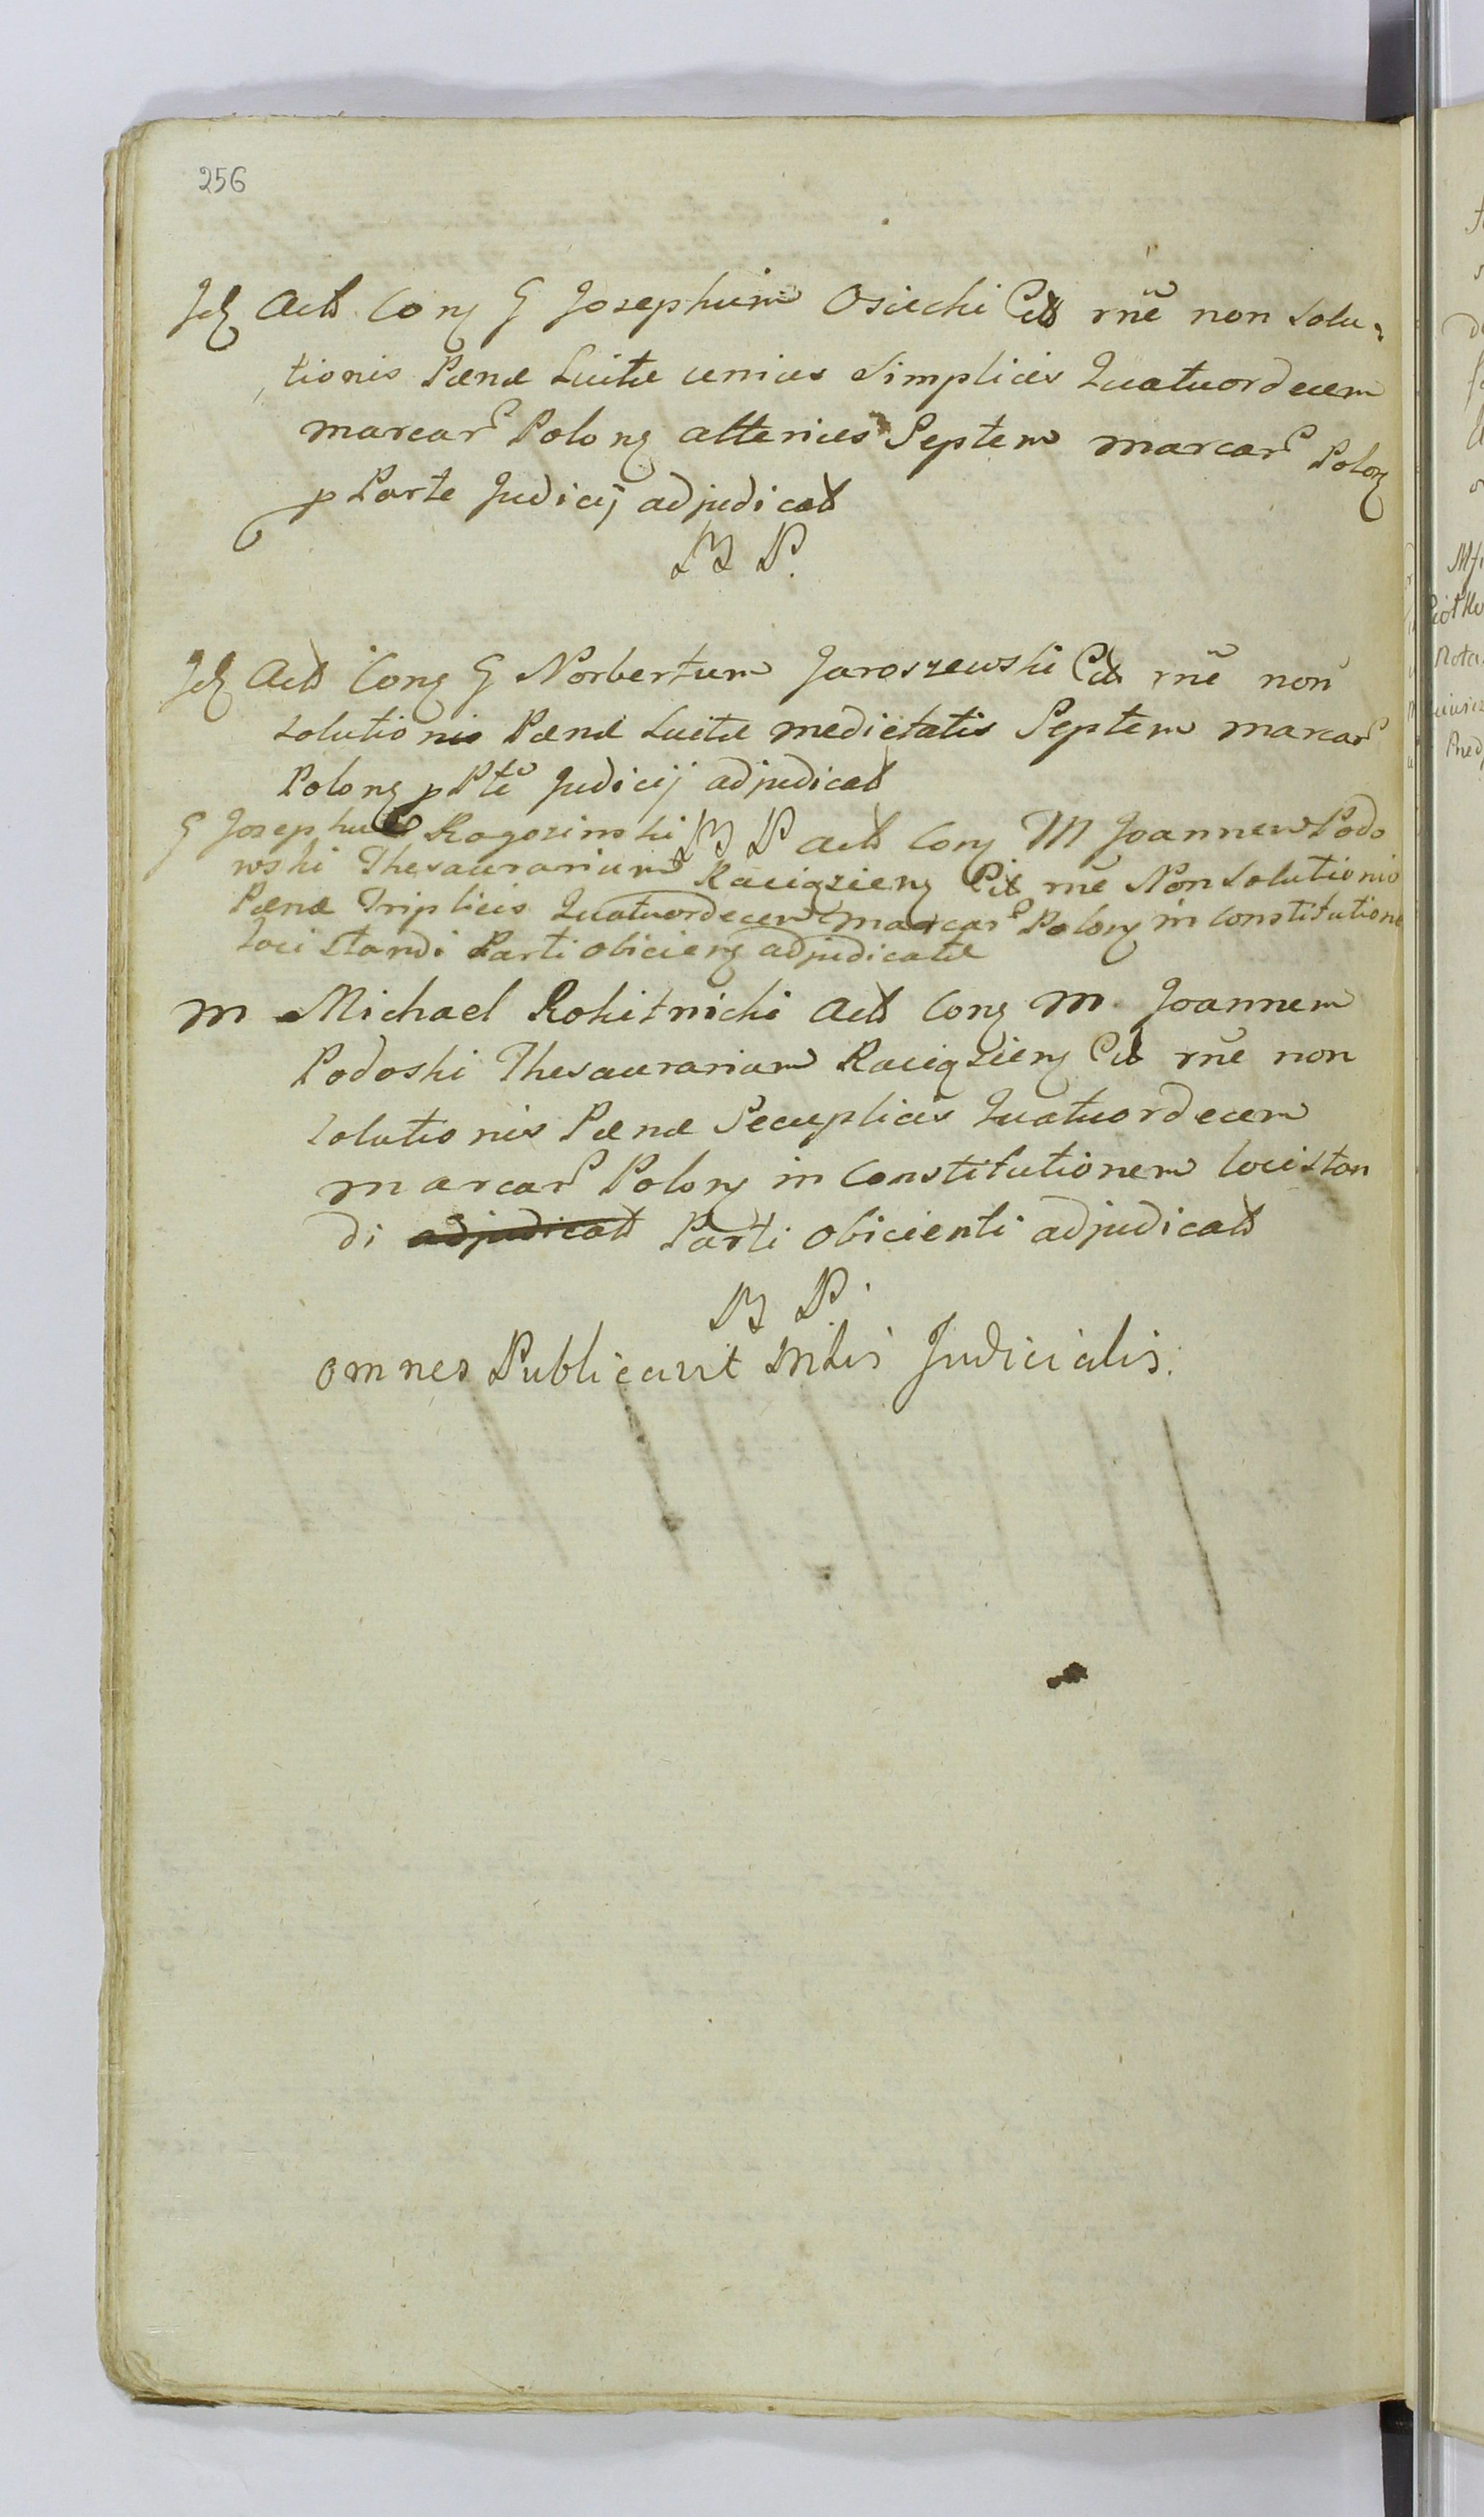 256
Id Act Con G Josephum Osiecki Cit rne non solu-
tionis Pænæ Luitæ unius simplicis Quatuordecem
marcar Polon alterius Septem marcar Polon
p Parte Judicij adjudicat
B P.
Id Act Con G Norbertum Jaroszewski Cit rne non
solutionis Pænæ Luitæ medietatis Septem marcar
Polon p Pte Judicij adjudicat
B P
G Josephus Rogozinski Act Con M Joannem Podo
wski Thesaurarium Raciązien Cit rne Non Solutionis
Pænæ Triplicis Quatuordecem marcar Polon in Constitutione
loci standi Parti obicien adjudicatæ
M Michael Rokitnicki Act Con M. Joannem
Podoski Thesaurarium Raciązien Cit rne non
solutionis Pænæ Secuplicis Quatuordecem
marcar Polon in Constitutionem loci stan
di adjudicat Parti obicienti adjudicat
B P.
omnes Publicavit Mtis Judicialis.